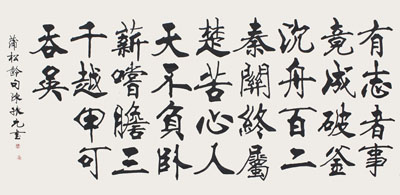 有志者事
竟成破釜
沉舟百二
秦關終屬
楚苦心人
天不負卧
薪嚐膽三
千越甲可
吞吳
蒲松齡句陳振書